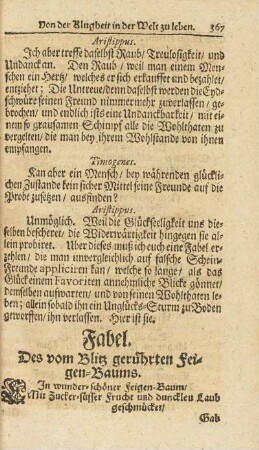 Von der Klugheit in der Welt zu leben. 367
Aristippus.
Ich aber treffe daselbst Raub/ Treulosigkeit/ und
Undanck an. Den Raub/ weil man einem Men-
schen ein Hertz/ welches er sich erkauffet und bezahlet/
entziehet; Die Untreue/ denn daselbst werden die Eyd-
schwüre seinen Freund nimmermehr zuverlassen/ ge-
brochen/ und endlich ists eine Undanckbarkeit/ mit ei-
nem so grausamen Schimpf alle die Wohlthaten zu
vergelten/ die man bey ihrem Wohlstande von ihnen
empfangen.
Timogenes.
Kan aber ein Mensch/ bey währenden glückli-
chen Zustande kein sicher Mittel seine Freunde auf die
Probe zusetzen/ ausfinden?
Aristippus.
Unmöglich. Weil die Glückseeligkeit uns die-
selben bescheret/ die Widerwärtigkeit hingegen sie al-
lein probiret. Uber dieses muß ich euch eine Fabel er-
zehlen/ die man unvergleichlich auf falsche Schein-
Freunde appliciren kan/ welche so lange/ als das
Glück einem Favoriten annehmliche Blicke gönnet/
demselben aufwarten/ und von seinen Wohlthaten le-
ben; allein so bald ihn ein Unglücks-Sturm zu Boden
geworffen/ ihn verlassen. Hier ist sie.
Fabel.
Des vom Blitz gerührten Fei-
gen-Baums.
EIn wunder-schöner Feigen-Baum/
Mit Zucker-süsser Frucht und dunckleu Laub
geschmücket/
Gab